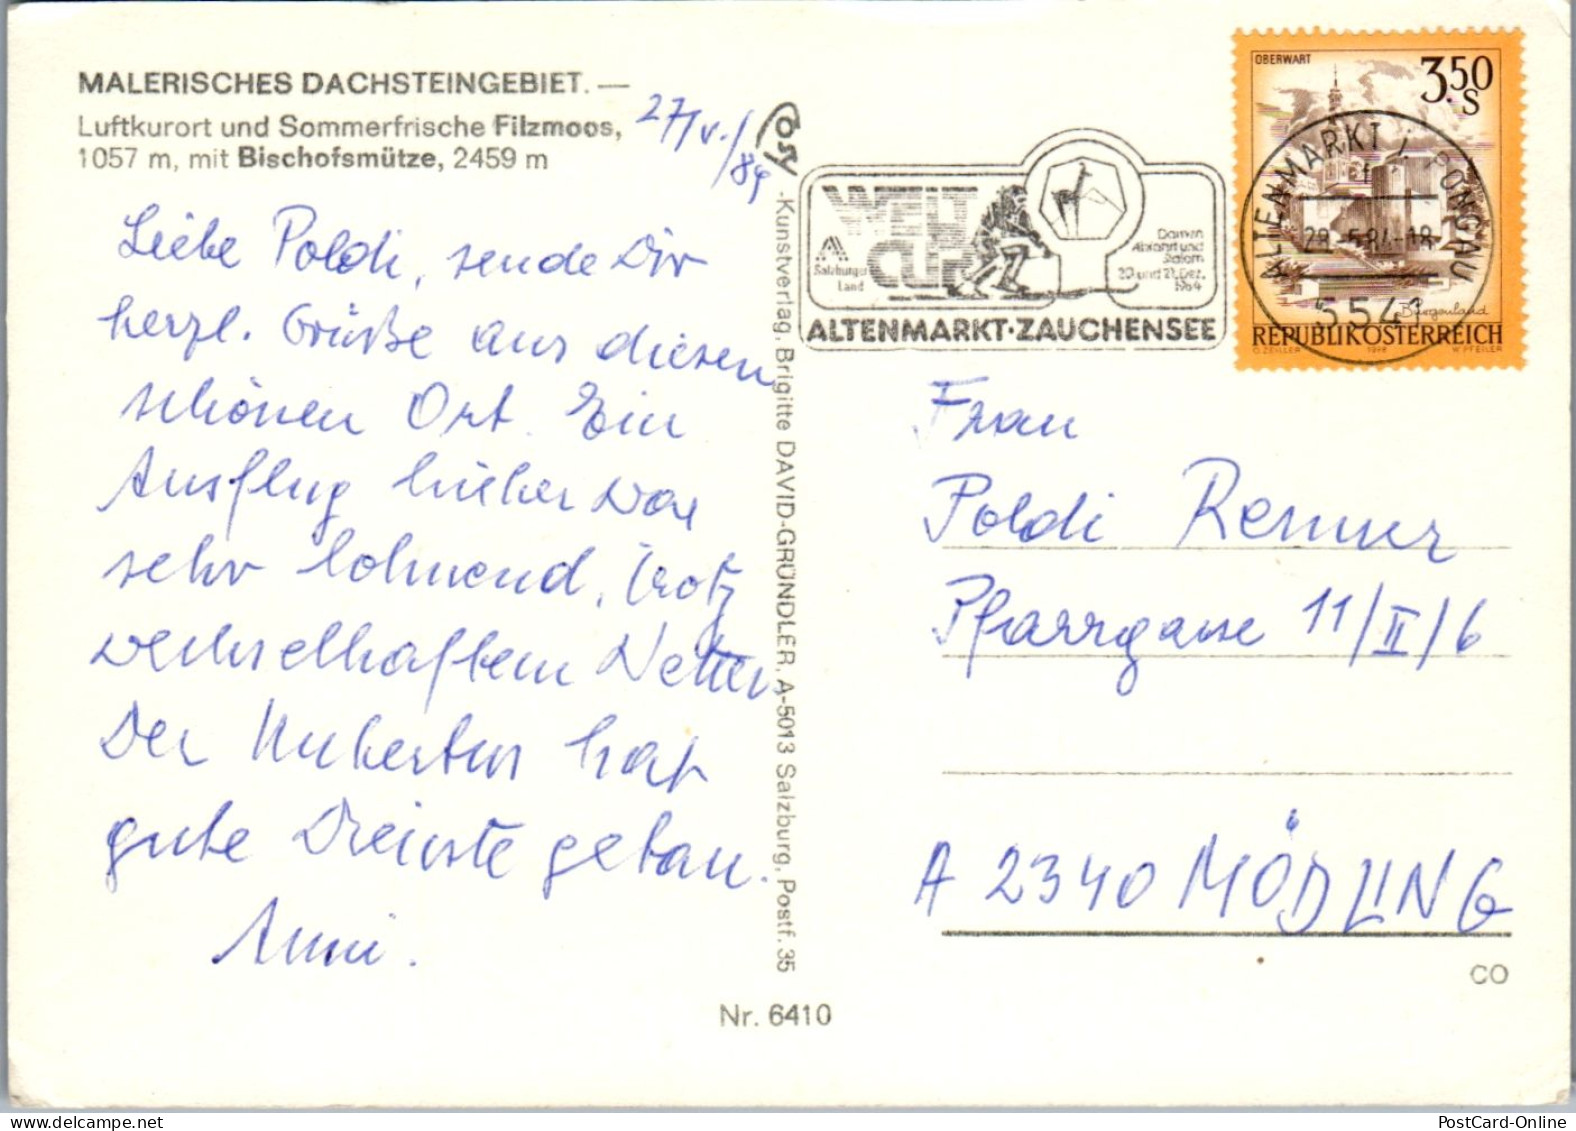 MALERISCHES DACHSTEINGEBIET. —
Luftkurort und Sommerfrische Filzmoos,
1057 m, mit Bischofsmütze, 2459 m
27/V./84
Liebe Poldi, sende Dir
herzl. Grüße aus diesen
schönen Ort. Ein
Ausflug hieher war
sehr lohnend, trotz
wechselhaftem Wetter.
Der Hubertus hat
gute Dienste getan.
Anni.
Cosy
-Kunstverlag, Brigitte DAVID-GRÜNDLER, A-5013 Salzburg, Postf. 35
Nr. 6410
WELT
CUP
Salzburger
Land
Damen
Abfahrt und
Slalom
20. und 21. Dez.
1984
ALTENMARKT·ZAUCHENSEE
OBERWART
3,50
S
ALTENMARKT I. PONGAU
28.5.84-18
5541
Burgenland
REPUBLIK ÖSTERREICH
O. ZEILLER
W. PFEILER
Frau
Poldi Renner
Pfarrgasse 11/II/6
A 2340 MÖDLING
CO
PostCard-Online